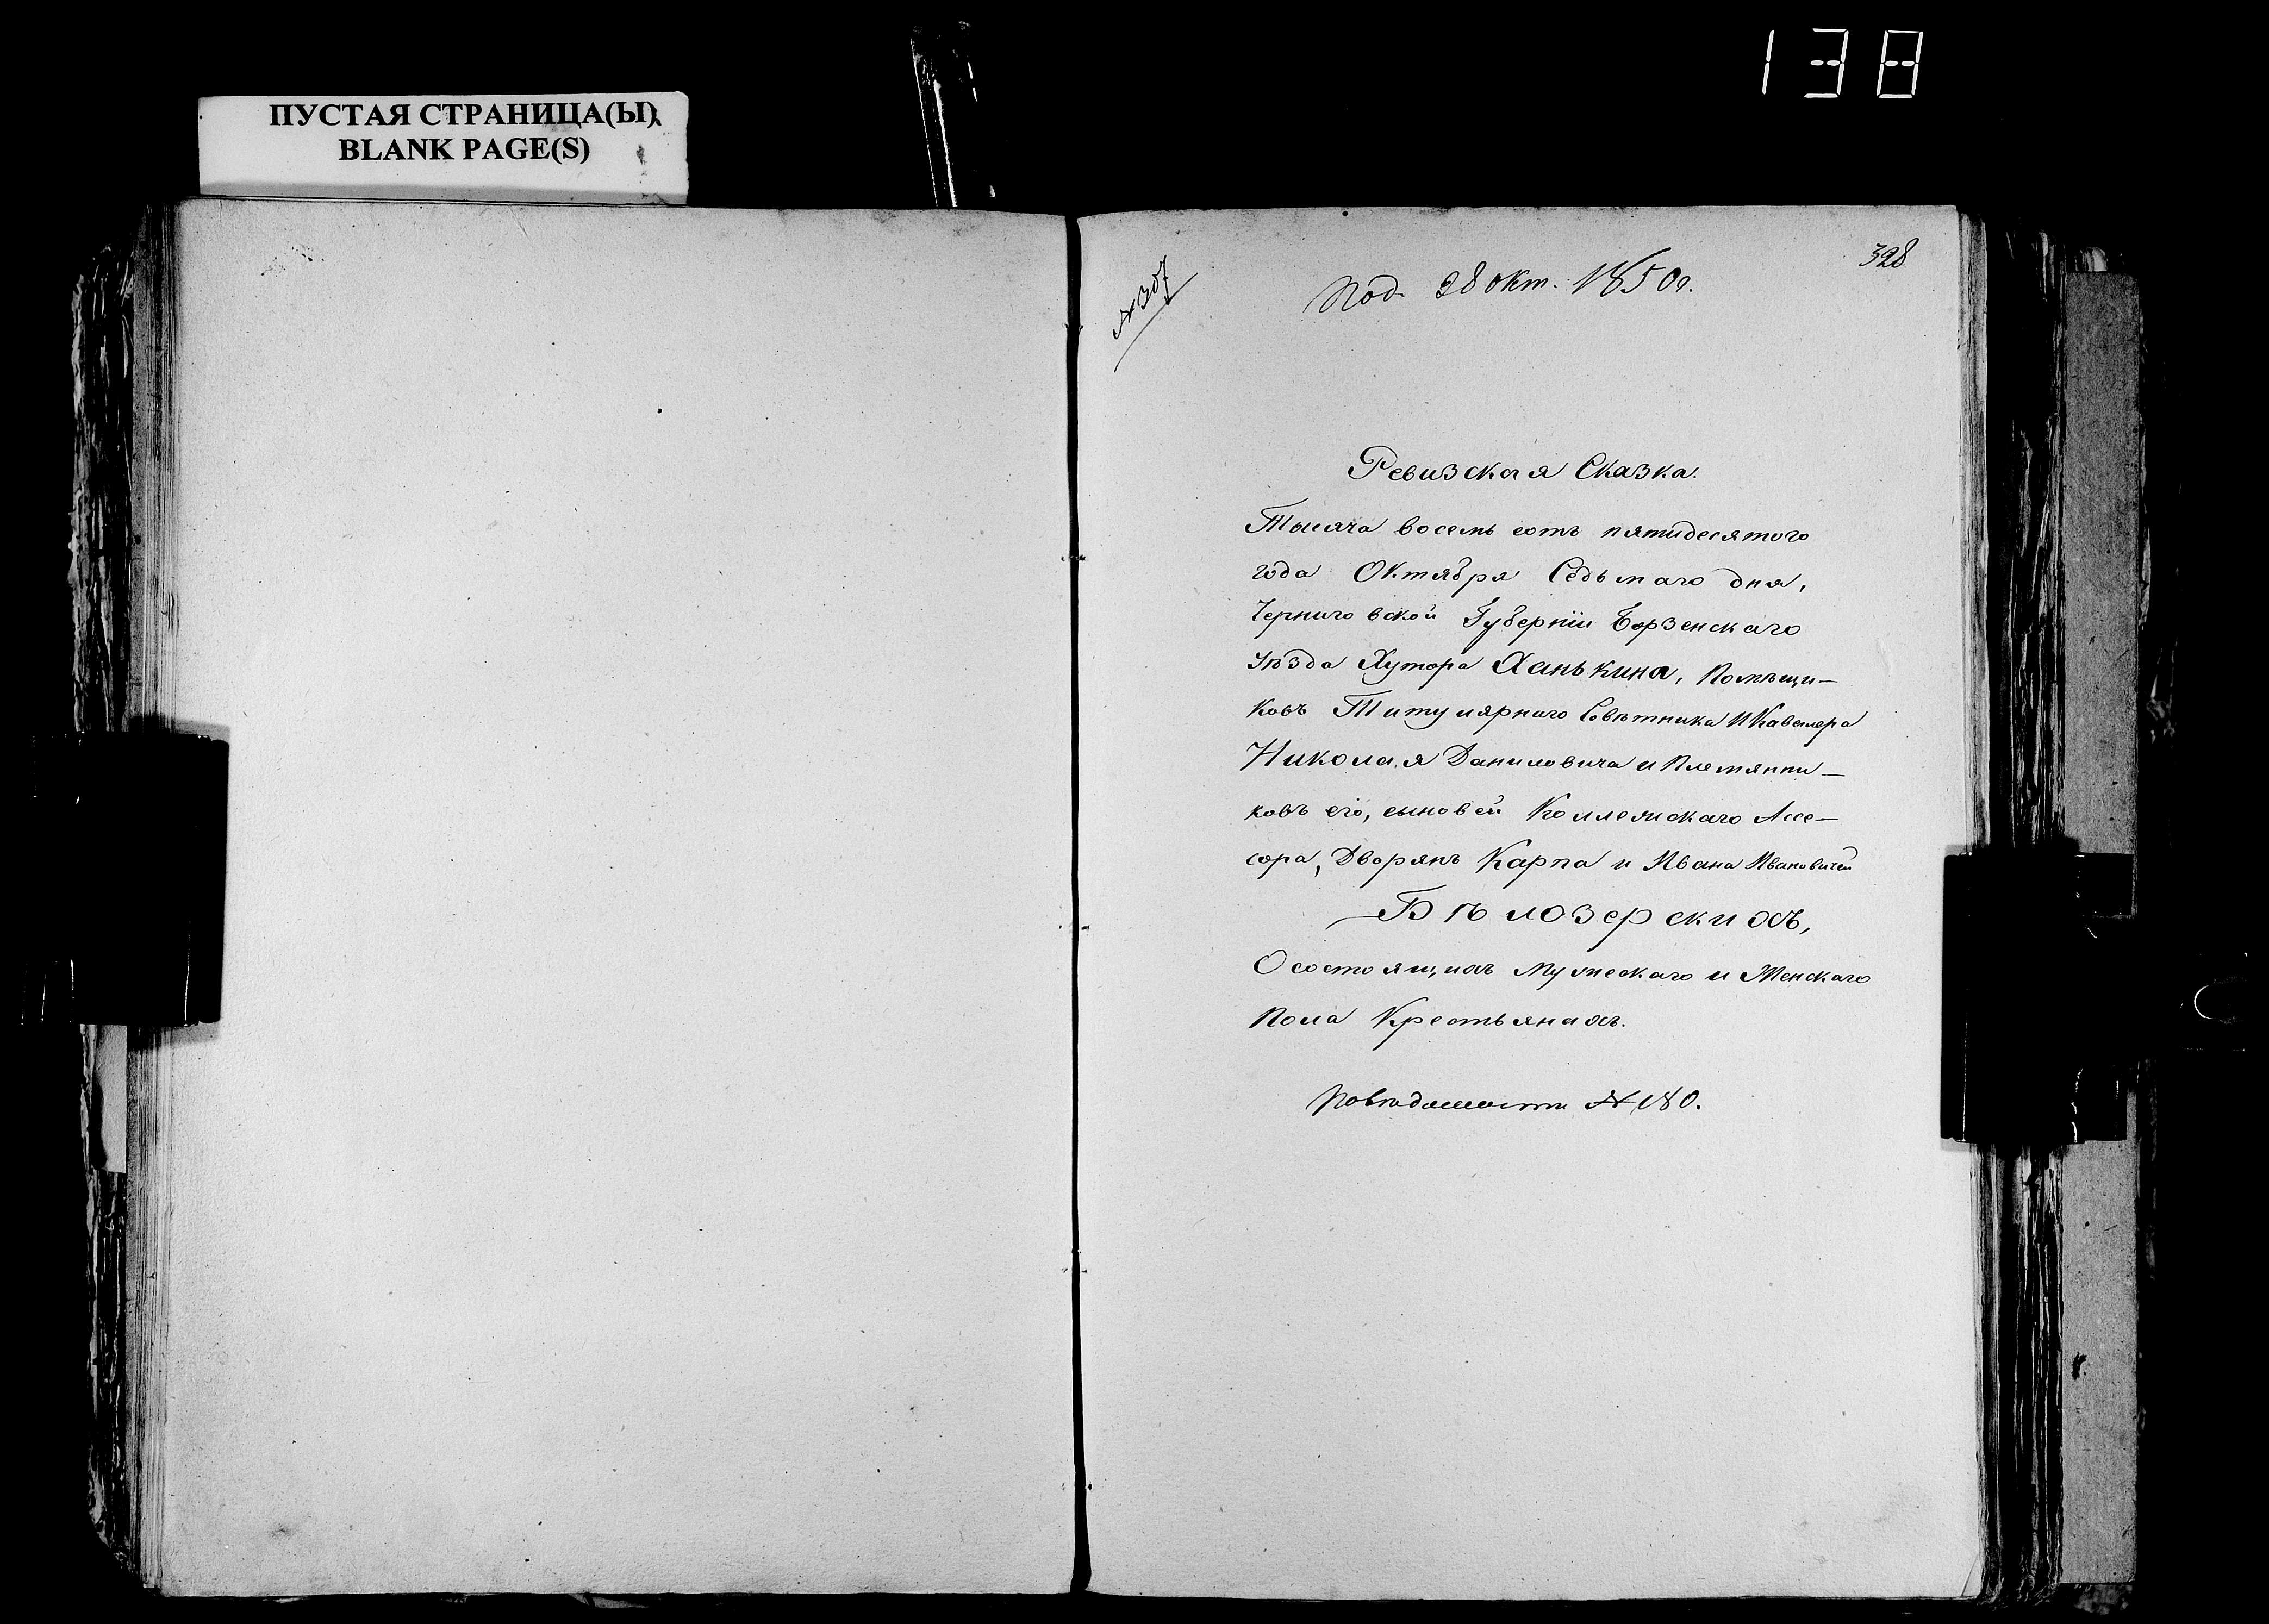 138
ПУСТАЯ СТРАНИЦА(Ы)
BLANK PAGE(S)
328
№ 307
Под. 28 окт. 1850 г.
Ревизская Сказка.
Тысяча восемь сотъ пятидесятого
года Октября Седьмаго дня,
Черниговской Губерніи Борзенскаго
Уѣзда Хутора Ханькина, Помѣщи-
ковъ Титулярнаго Совѣтника и Кавалера
Николая Даниловича и Племянни-
ковъ его, сыновей Коллежскаго Ассе-
сора, Дворянъ Карпа и Ивана Ивановичей
Бѣлозерскихъ,
О состоящихъ Мужескаго и Женскаго
Пола Крестьянахъ.
По вѣдомости № 180.